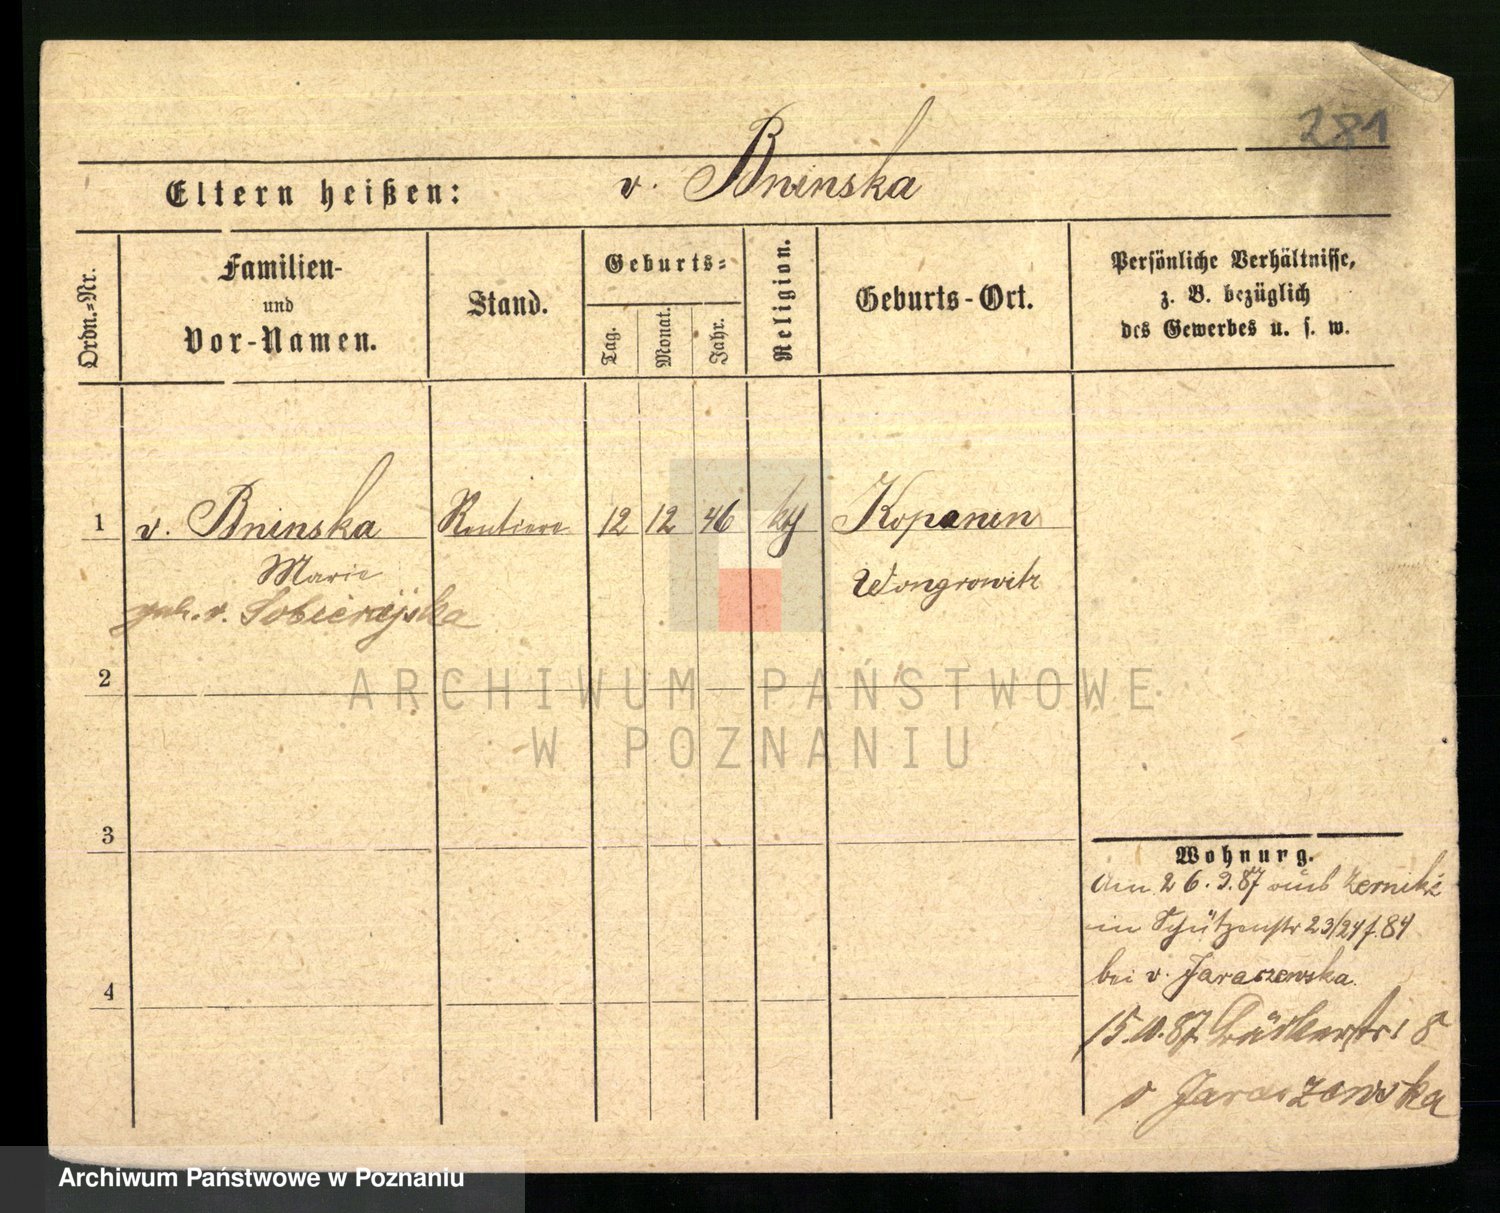 281
Eltern heißen: v. Bninska
Ordn.-Nr.
Familien-
und
Vor-Namen.
Stand.
Geburts-
Tag.
Monat.
Jahr.
Religion.
Geburts-Ort.
Persönliche Verhältnisse,
z. B. bezüglich
des Gewerbes u. s. w.
1 v. Bninska Rentiere 12 12 46 Kopanin
Marie Wongrowitz
geb. v. Sobierajska
2
ARCHIWUM PAŃSTWOWE
W POZNANIU
3
Wohnung.
Am 26.9.87 aus Zerniki
in Schützenstr 23/24 f. 84
bei v. Jaraczewska.
4
15.10.87 Bäckerstr 18
v Jaraczewska
Archiwum Państwowe w Poznaniu